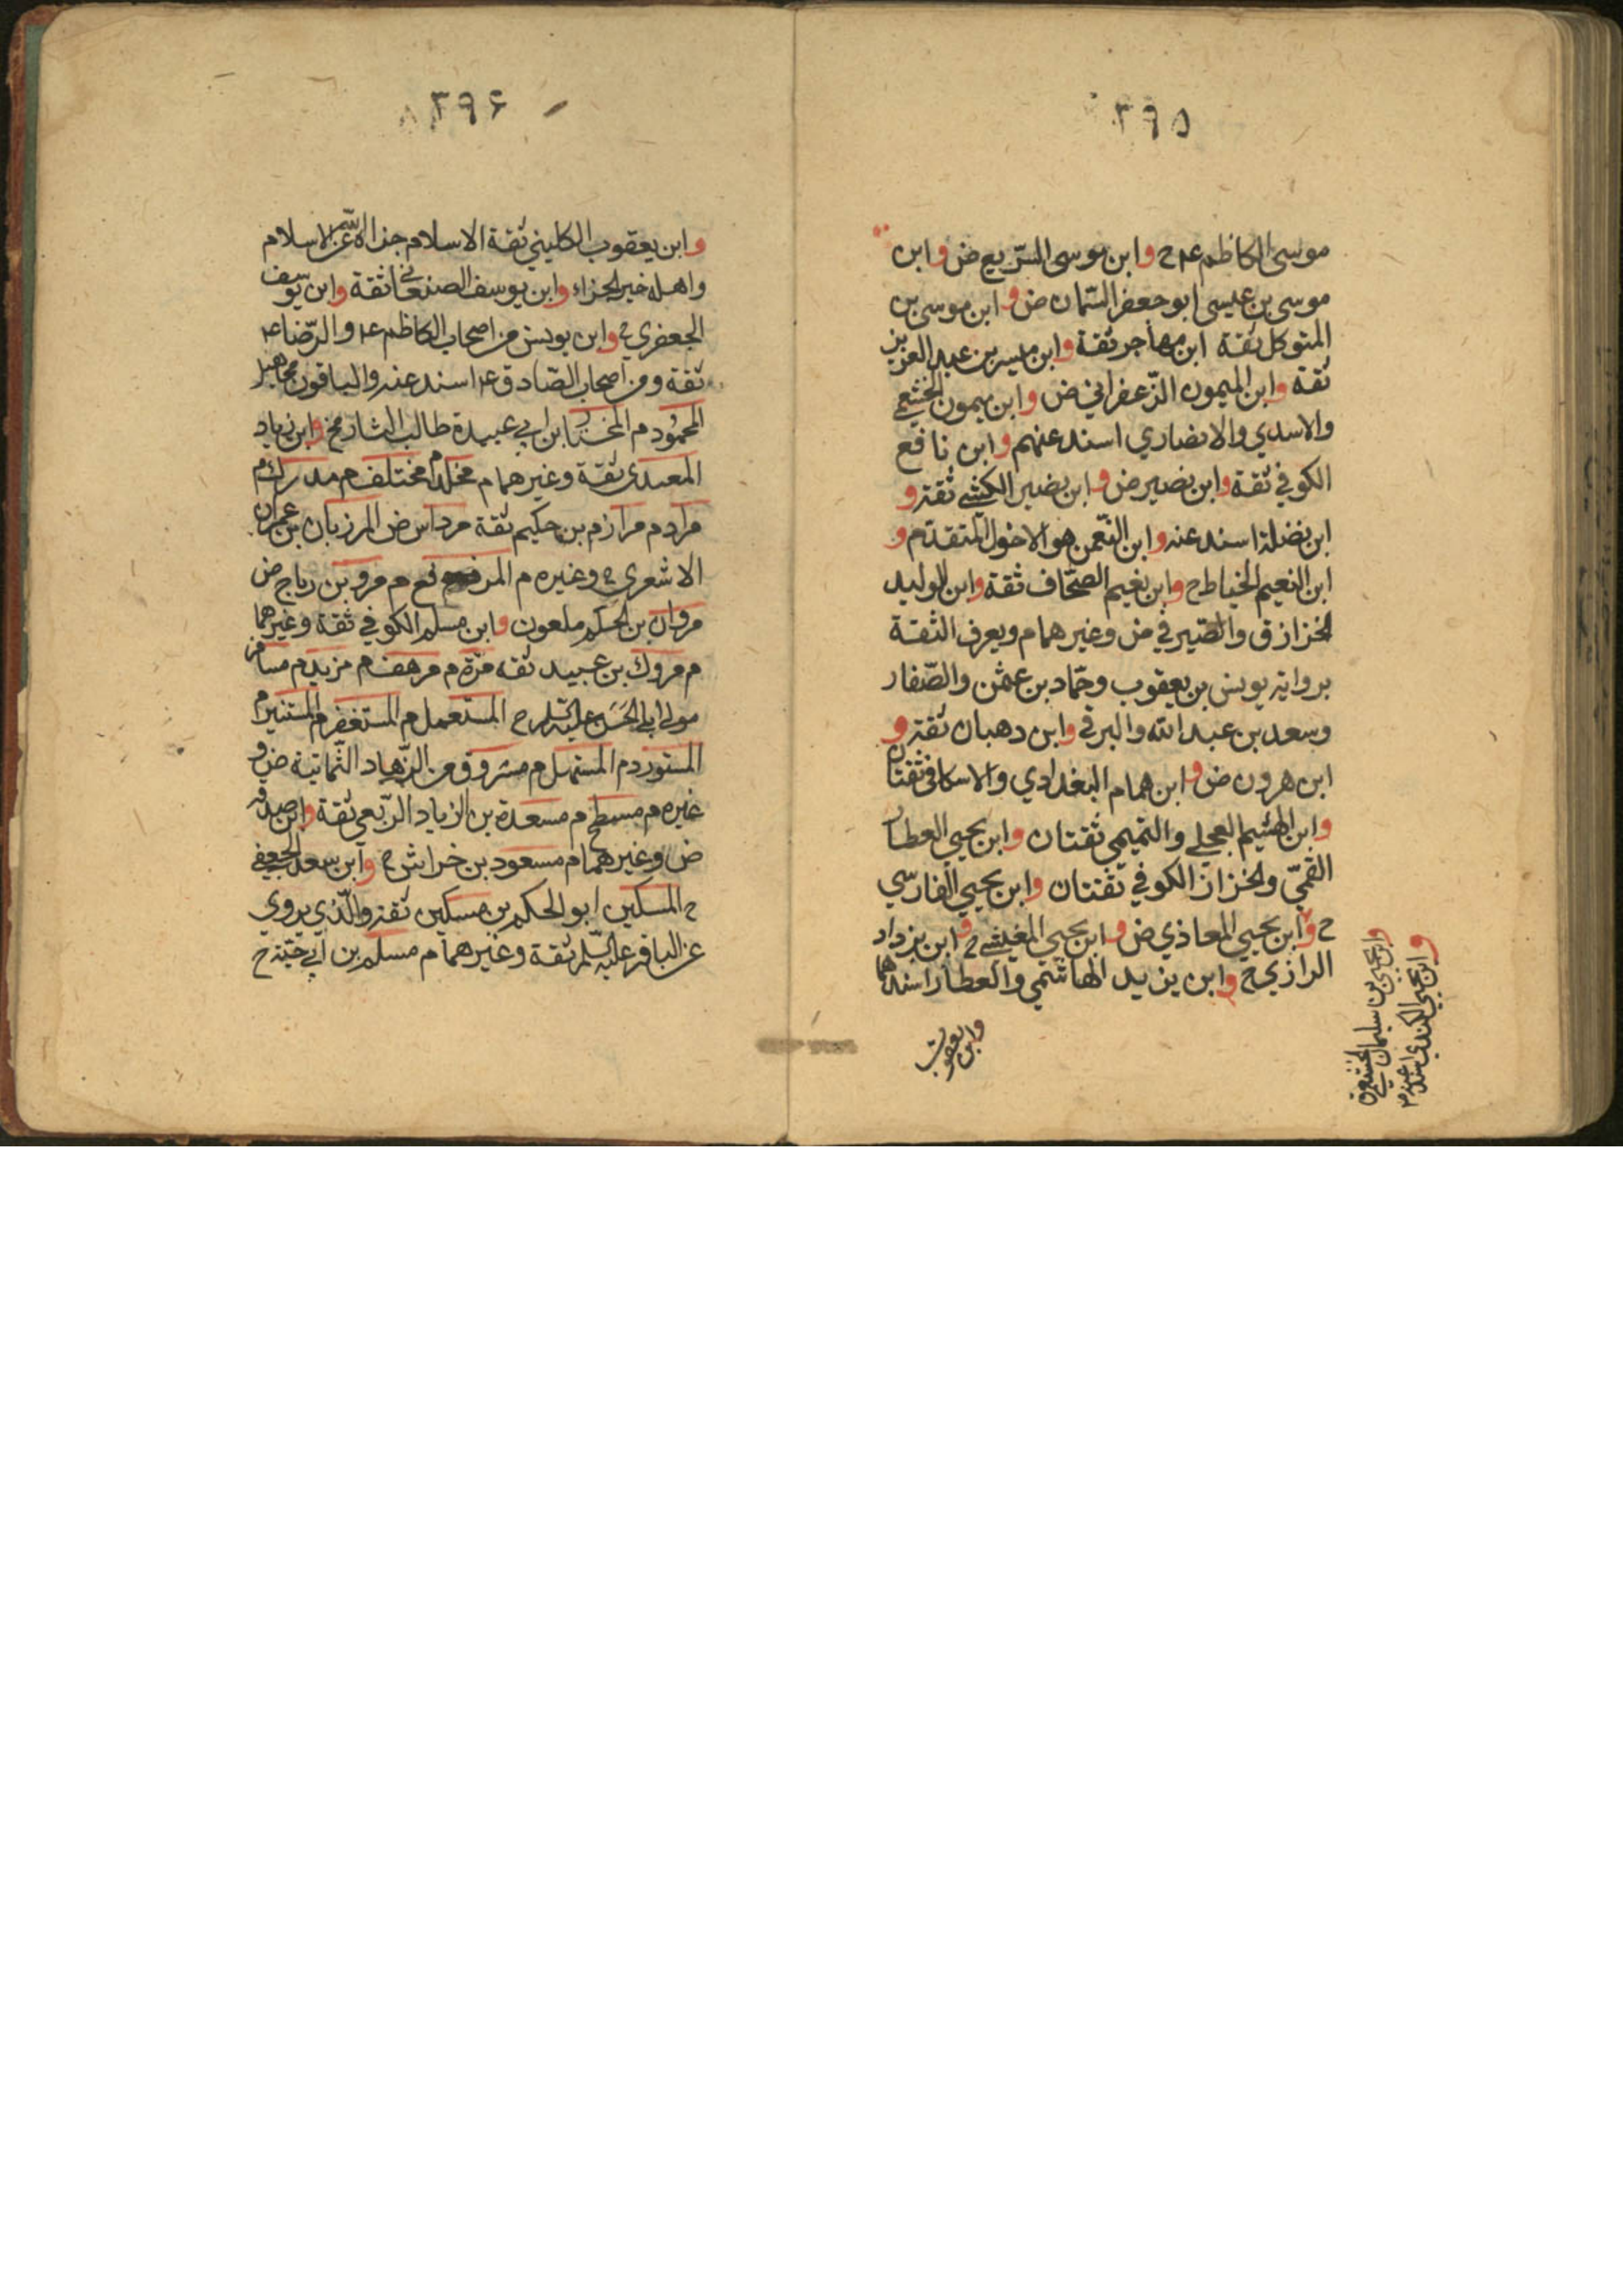 ٣٩٥
موسى الكاظم ع م ح وابن موسى السريع ض وابن
موسى بن عيسى ابو جعفر السّمان ض وابن موسى بن
المتوكل ثقة ابن مهاجر ثقة وابن ميسر بن عبد العزيز
ثقة وابن الميمون الزّعفراني ض وابن ميمون الخثعمي
والاسدي والانصاري اسند عنهم وابن نافع
الكوفي ثقة وابن نصير ض وابن نصير الكشي ثقة و
ابن نضلة اسند عنه وابن النّعمن هو الاحول المتقدّم و
ابن النعيم الخياط ح وابن نعيم الصحّاف ثقة وابن الوليد
الخزاز ق والصّيرفي ض وغيرهما م ويعرف الثقة
برواية يونس بن يعقوب وحمّاد بن عثمن والصّفار
وسعد بن عبد الله والبرقي وابن دهبان ثقة و
ابن هرون ض وابن همام البغدادي والاسكافي ثقتان
وابن الهثيم العجلي والتميمي ثقتان وابن يحيي العطار
القمّيّ والخزاز الكوفي ثقتان وابن يحيي الفارسي
ح وابن يحيي المعاذي ض وابن يحيي المغيثي ح وابن يزداد
الرازي ح وابن يزيد الهاشمي والعطار اسند هما
وابن يعقوب
وابن يحيي بن سليمان الخثعمي ق
وابن يحيي الكندي اسند عنه م
٣٩٦
وابن يعقوب الكليني ثقة الاسلام جزاه الله عن الاسلام
واهله خير الجزاء وابن يوسف الصنعاني ثقة وابن يوسف
الجعفري ح وابن يونس من اصحاب الكاظم ع م والرّضا ع م
ثقة ومن اصحاب الصّادق ع م اسند عنه والباقون مجاهيل
المحمود م المختار ابن ابي عبيدة طالب الثار مخ وابن زياد
العبدي ثقة وغيرهما م مخلد م مختلف م مدرك م
مراد م مرازم بن حكيم ثقة مرداس ض المرزبان بن عمران
الاشعري ح وغيره م المرفع م مرو بن رباح ض
مروان بن الحكم ملعون وابن مسلم الكوفي ثقة وغيرهما
م مروك بن عبيد ثقة مرّة م مرهف م مزيد م مسافر
مولى ابي الحسن عليه السّلم ح المستعمل م المستغفر م المستنير م
المستورد م المستهل م مسروق من الزّهاد الثّمانية ض و
غيره م مسطح م مسعدة بن الزياد الرّبعي ثقة وابن صدقة
ض وغيرهما م مسعود بن خراش ح وابن سعد الجعفي
ح المسكين ابو الحكم بن مسكين ثقة والّذي يروي
عن الباقر عليه السّلم ثقة وغيرهما م مسلم بن ابي حيّة ح